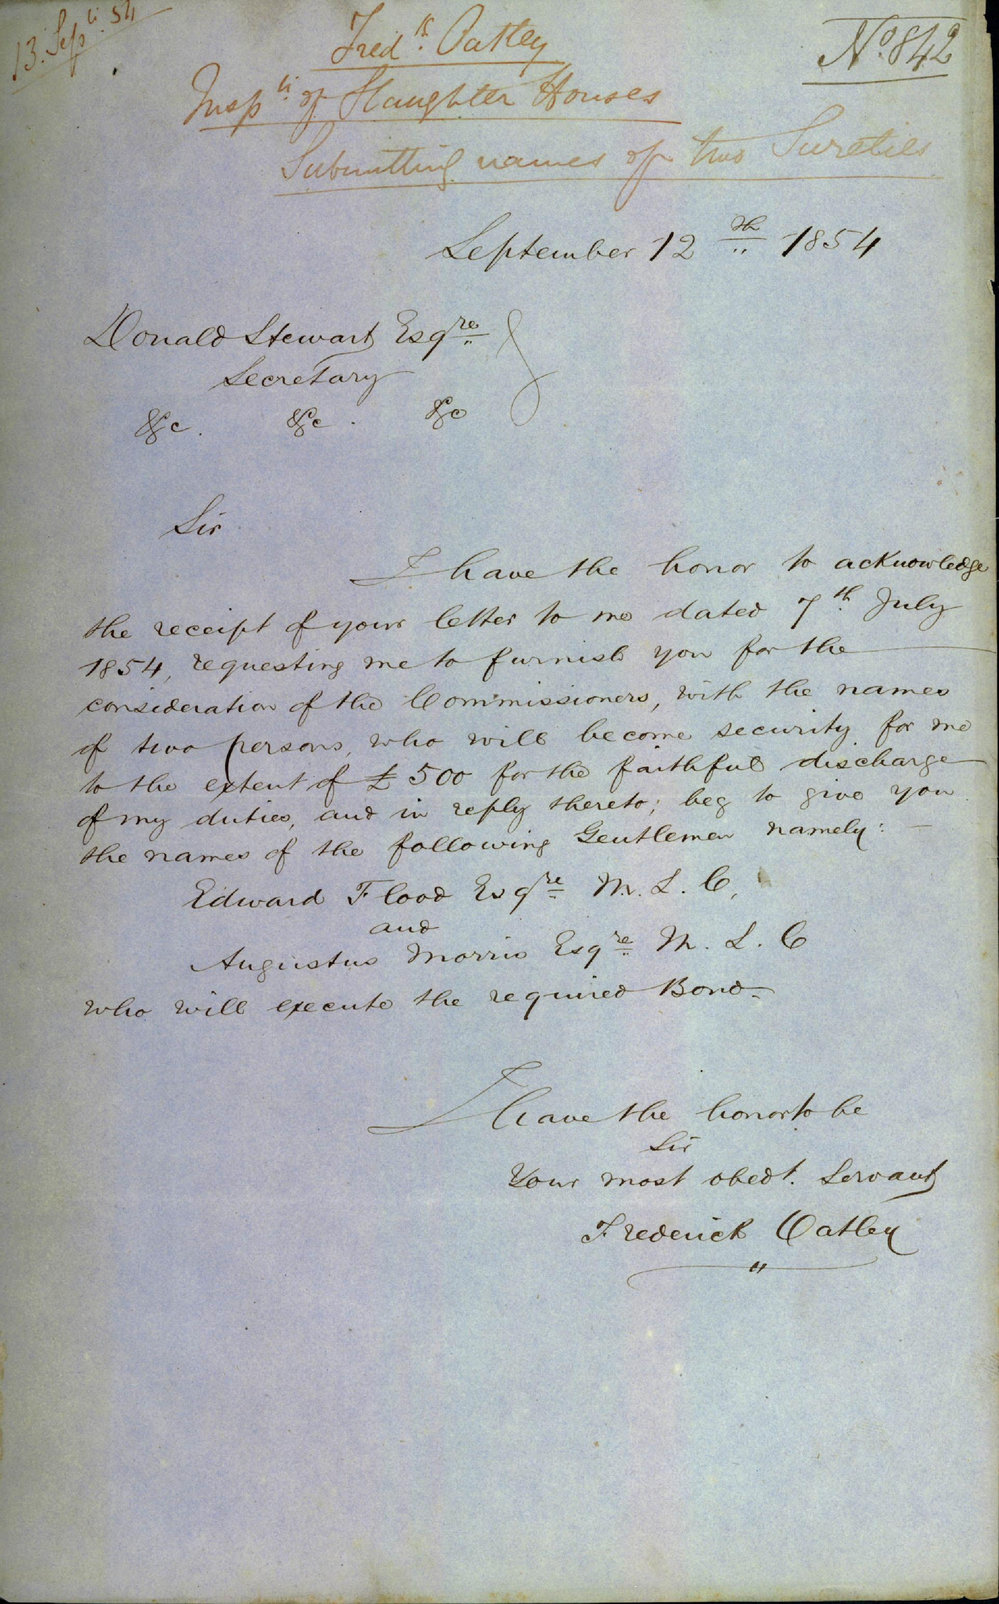 13. Sepr. 54
Fredk. Oatley
No. 842
Inspr. of Slaughter Houses
Submitting names of two Sureties
September 12th 1854
Donald Stewart Esqre
Secretary
&c. &c. &c
Sir
I have the honor to acknowledge
the receipt of your letter to me dated 7th July
1854, requesting me to furnish you for the
consideration of the Commissioners, with the names
of two persons, who will become security for me
to the extent of £500 for the faithful discharge
of my duties, and in reply thereto; beg to give you
the names of the following Gentlemen namely: —
Edward Flood Esqre M. L. C,
and
Augustus Morris Esqre M. L. C
who will execute the required Bond -
I have the honor to be
Sir
Your most obedt. Servant
Frederick Oatley